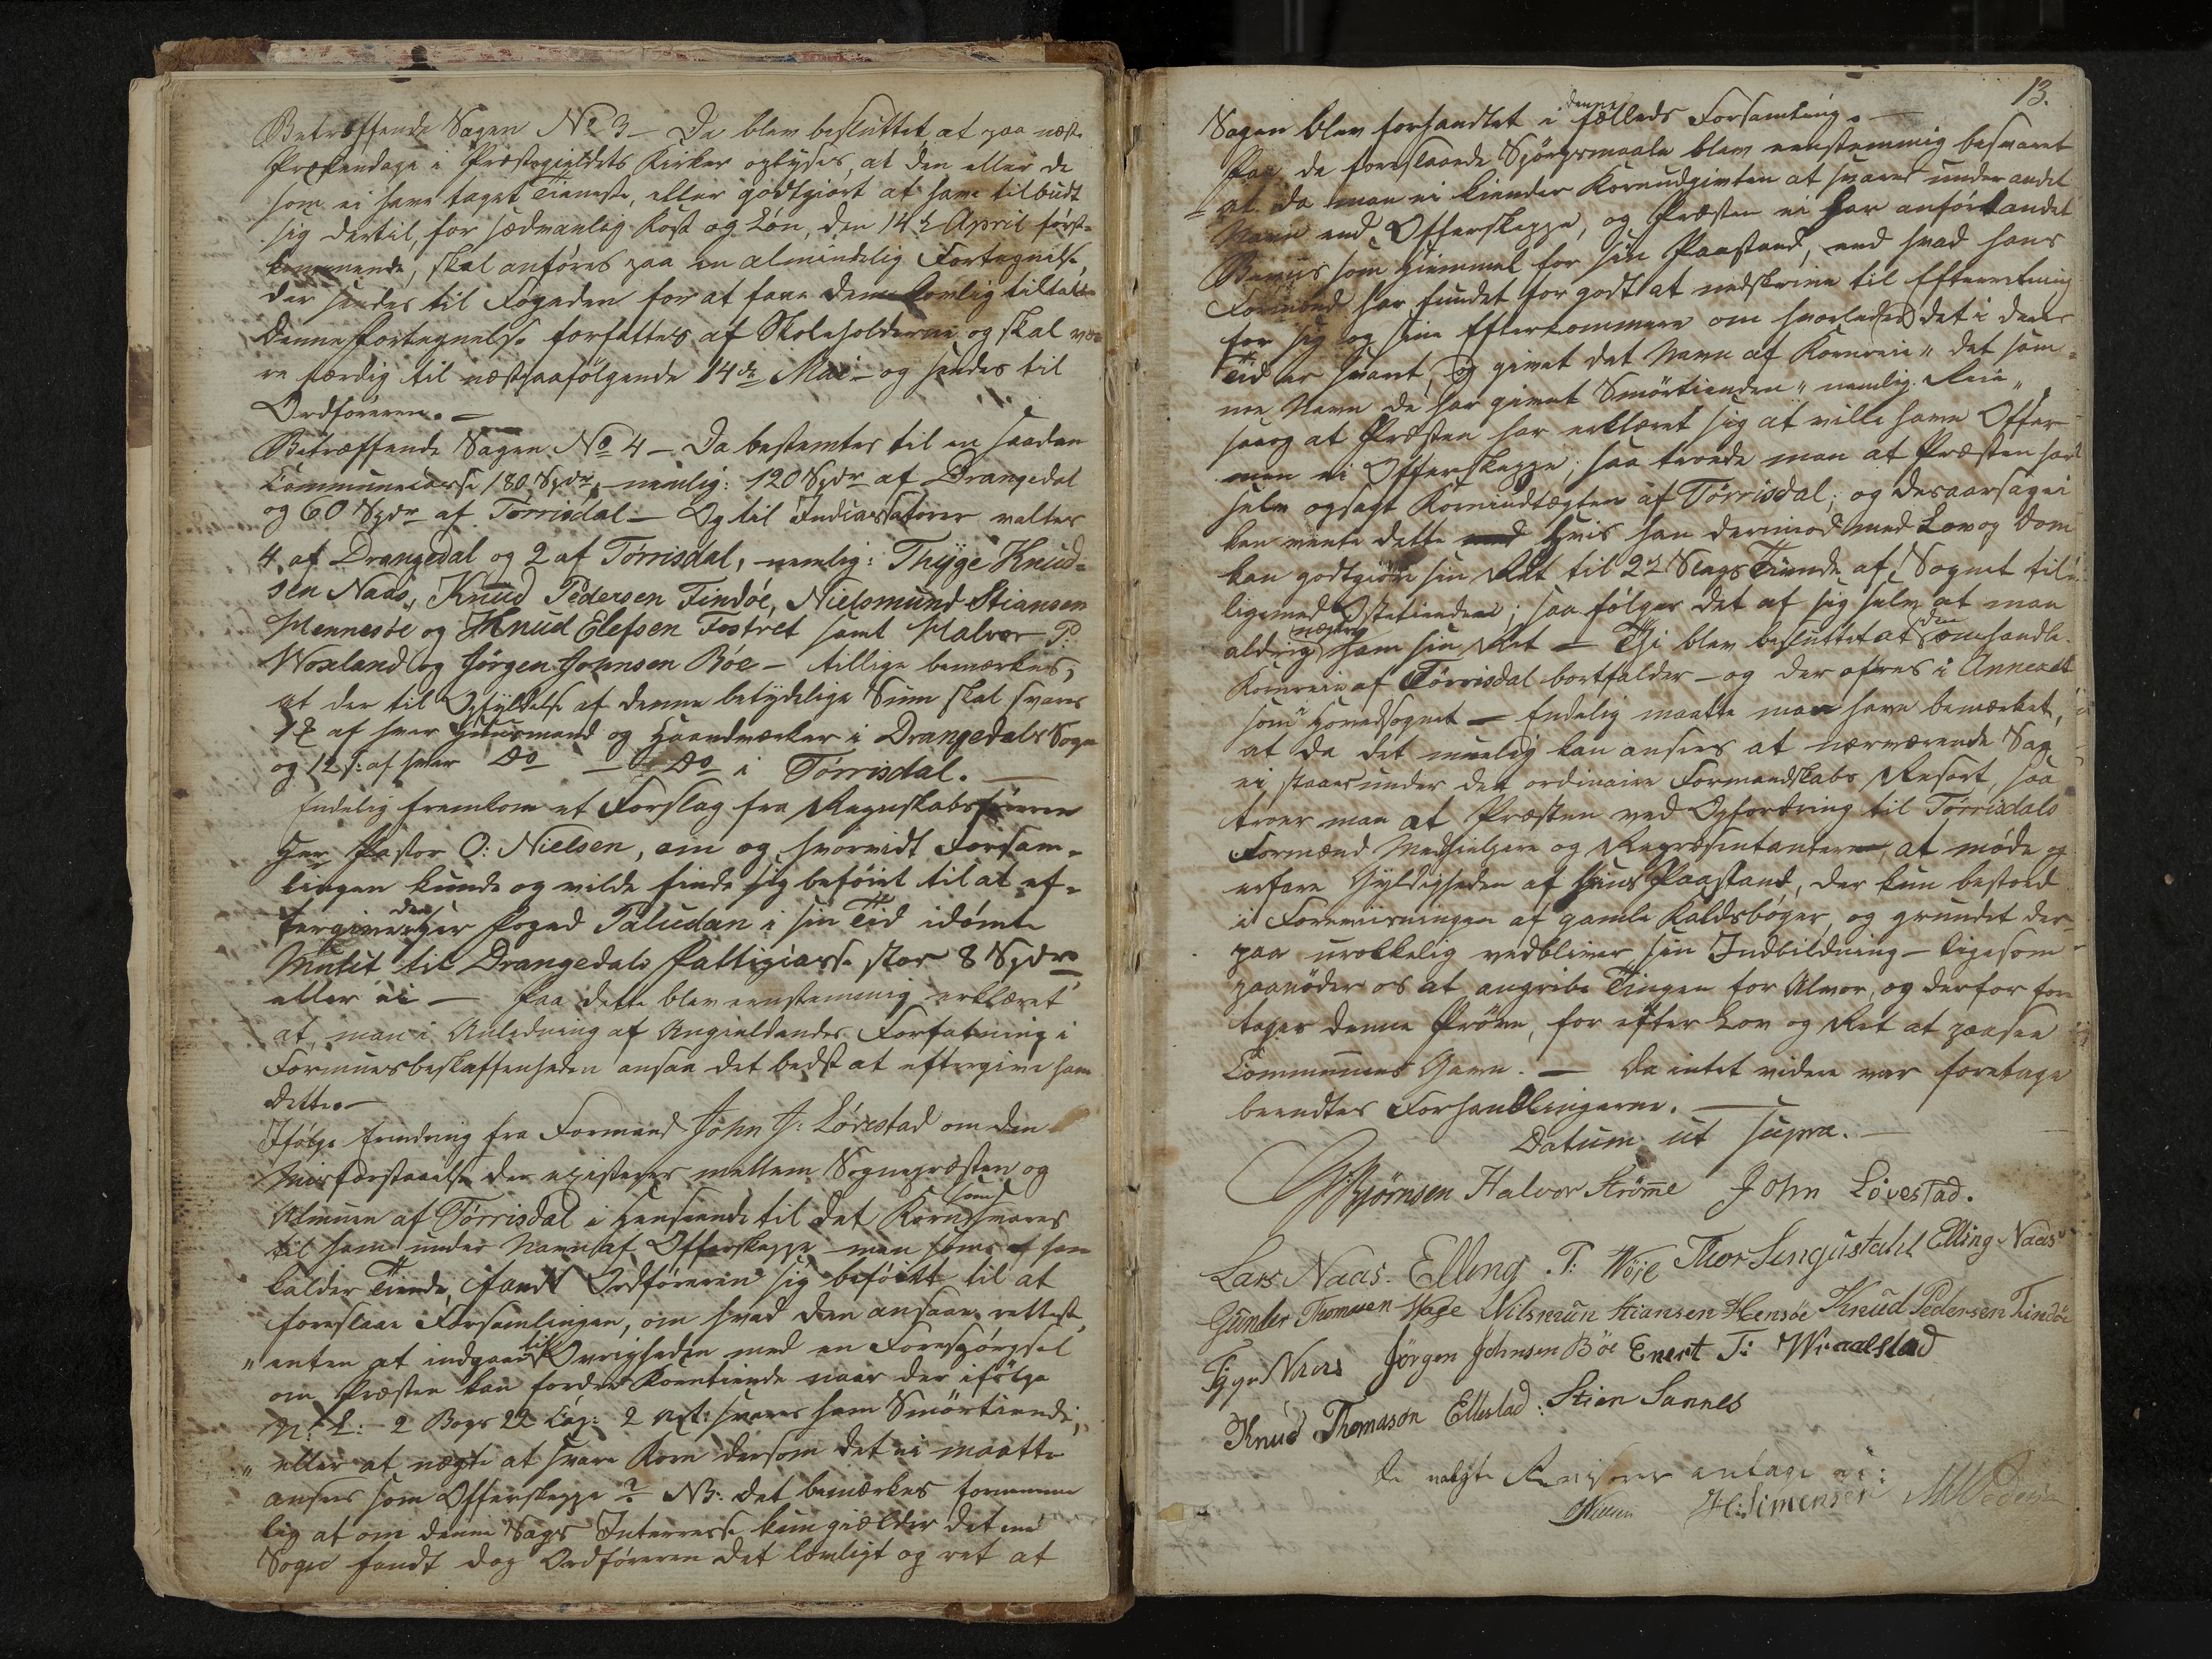 Betræffende Sagen No 3 – Da blev besluttet at paa næste
Prækendage i Præstegieldets Kirker oplyses, at den eller de
som ei have taget Tieneste, eller godtgiort at have tilbudt
sig dertil, for sædvanlig Kost og Løn, den 14de April først-
kommende, skal anføres paa en almindelig Fortegnelse,
der sendes til Fogeden for at faae dem lovlig tiltalte
Denne Fortegnelse forfattes af Skoleholderne og skal væ-
re færdig til næstpaafølgende 14de Mai – og sendes til
Ordføreren. –
Betræffende Sagen No 4 – Da bestemtes til en saadan
Communecasse 180 Spdr, nemlig: 120 Spdr af Drangedal
og 60 Spdr af Tørrisdal – Og til Indcassatorer valtes
4 af Drangedal og 2 af Tørrisdal, nemlig: Thyge Knud-
sen Naas, Knud Pedersen Tindøe, Nielsmund Stiansen
Hennesøe og Knud Elefsen Tostvet samt Halvor P.
Woxland og Jørgen Johnsen Bøe – tillige bemærkes,
at der til Opfyldelse af denne betydelige Sum skal svares
af hver Huusmand og Haandværker i Drangedals Sogn
og 12 s: af hver Do – Do i Tørrisdal. –
Endelig fremkom et Forslag fra Regnskabsføreren
Herr Pastor O: Nielsen, om og hvorvidt Forsam-
lingen kunde og vilde finde sig beføiet til at ef-
tergive den Hr Foged Paludan i sin Tid idømte
Mulct til Drangedals Fattigcasse stor 8 Spdr
eller ei – Paa dette blev eenstemmig erklæret
at, man i Anledning af Angieldendes Forfatning i
Formuesbeskaffenheden ansaae det bedst at eftergive ham
dette. –
Ifølge Erindring fra Formand John J: Løvestad om den
Misforstaaelse der existerer mellem Sognepræsten og
Almuen af Tørrisdal i Henseende til det Korn som svares
til ham under Navn af Offerskeppe men som han
kalder Tiende, fandt Ordføreren sig beføiet til at
foreslaae Forsamlingen, om hvad den ansaae rettest,
"enten at indgaae til Øvrigheden med en Forespørgsel
om Præsten kan fordre Korntiende naar der ifølge
N: L: – 2 Bogs 22 Cap: 2 Art: svares ham Smørtiende;
"eller at nægte at svare Korn dersom det ei maatte
ansees som Offerskeppe? NB: det bemærkes fornemme
lig at om denne Sags Interresse kun gielder det ene
Sogn fandt dog Ordføreren det lovligt og ret at
13.
Sagen blev forhandlet i denne fælleds Forsamling. –
Paa de foreslaaede Spørgsmaale blev eenstemmig besvaret
at da man ei kiender Kornudgivten at svares under andet
Navn end Offerskeppe, og Præsten ei har anført andet
Beviis som Hiemmel for sin Paastand, end hvad hans
Formænd har fundet for godt at nedskrive til Efterretning
for sig og sine Efterkommere om hvorledes det i deres
Tid er svaret, og givet det Navn af Kornreie" det sam-
me Navn de har givet Smørtienden" nemlig: Reie"
saa og at Præsten har erklæret sig at ville have Offer
men ei Offerskeppe; saa troede man at Præsten har
selv opsagt Kornindtægten af Tørrisdal; og desaarsag ei
kan vente dette Hvis han derimod med Lov og Dom
kan godtgiøre sin Ret til 2de Slags Tiende af Sognet til-
ligemed Ostetienden; saa følger det af sig selv at man
aldrig nægter ham sin Ret – Thi blev besluttet at den omhandle-
Kornreie af Tørrisdal bortfalder – og der ofres i Annexet
som i Hovedsognet – Endelig maatte man have bemærket,
at da det muelig kan ansees at nærværende Sag
ei staaer under den ordinaire Formandskabs Resort, saa
troer man at Præsten ved Opfordring til Tørrisdals
Formænd Medhielpere og Repræsentantere, at møde og
erfare Gyldigheden af hans Paastand, der kun bestod
i Foreviisningen af gamle Kaldsbøger, og grundet der-
paa urokkelig vedbliver sin Indbildning – ligesom
paanøder os at angribe Tingen for Alvor, og derfor fore
tages denne Prøve, for efter Lov og Ret at paasee
Communens Gavn. – Da intet videre var foretage
beendtes Forhandlingerne. –
Datum ut supra. –
Bjørnsen Halvor Strømme John Løvestad.
Lars Naas. Elling T: Woje Thor Lingustahl Elling Naas
Gunder Thomesen Wage Nilsmun Stiansen Hensøe Knud Pedersen Tindøe
Tyge Naas Jørgen Johnsen Bøe Enert T: Wraalstad
Knud Thomason Ellestad: Stian Sannes
De valgte Revisorer antage vi:
ONielsen H: Simensen MPedersen